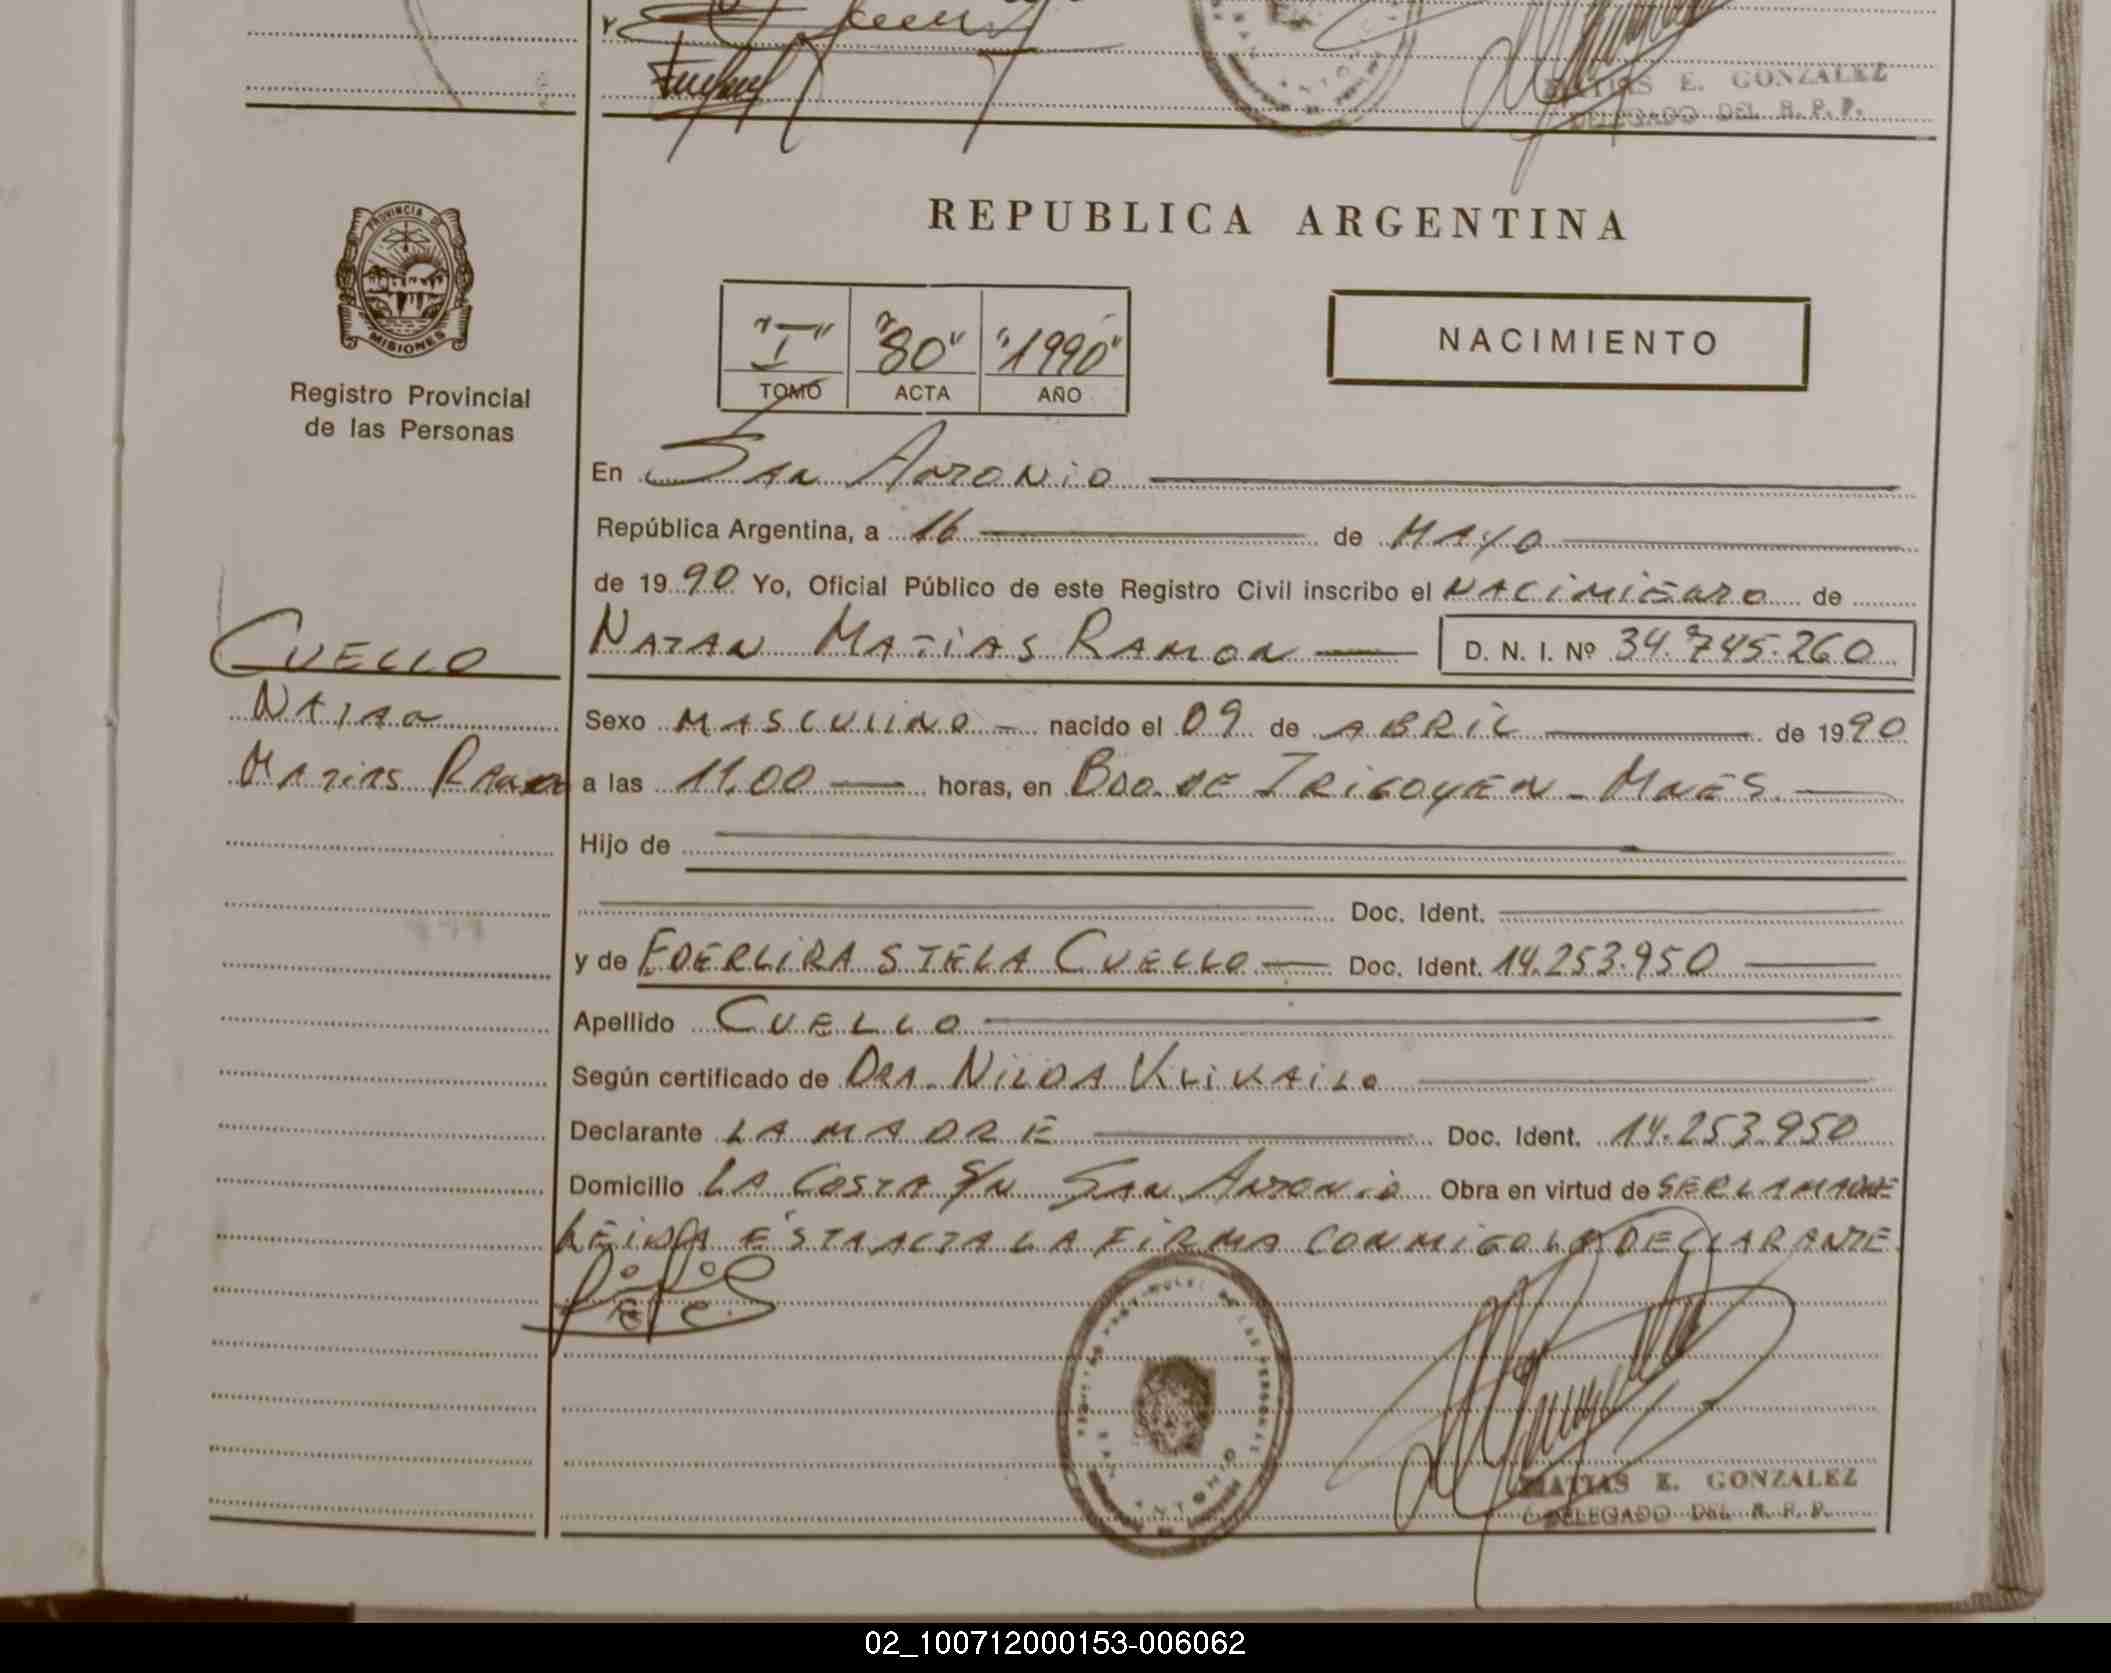 Y
MATIAS E. GONZALEZ
DELEGADO DEL R. P. P.
PROVINCIA DE
MISIONES
Registro Provincial
de las Personas
REPUBLICA ARGENTINA
"I" "80" "1990"
TOMO ACTA AÑO
NACIMIENTO
En San Antonio
República Argentina, a 16 de MAYO
de 1990 Yo, Oficial Público de este Registro Civil inscribo el NACIMIENTO de
CUELLO
NATAN MATIAS RAMON D. N. I. Nº 34.745.260
NATAN
Sexo MASCULINO nacido el 09 de ABRIL de 1990
MATIAS RAMON
a las 11.00 horas, en BDO. DE IRIGOYEN - MNES.
Hijo de
Doc. Ident.
y de EDERLIRA STELA CUELLO Doc. Ident. 14.253.950
Apellido CUELLO
Según certificado de DRA. NILDA
Declarante LA MADRE Doc. Ident. 14.253.950
Domicilio LA COSTA S/N SAN ANTONIO Obra en virtud de SER LA MADRE
LEIDA ESTA ACTA LA FIRMA CONMIGO LA DECLARANTE.
SAN ANTONIO
MATIAS E. GONZALEZ
DELEGADO DEL R. P. P.
02_100712000153-006062